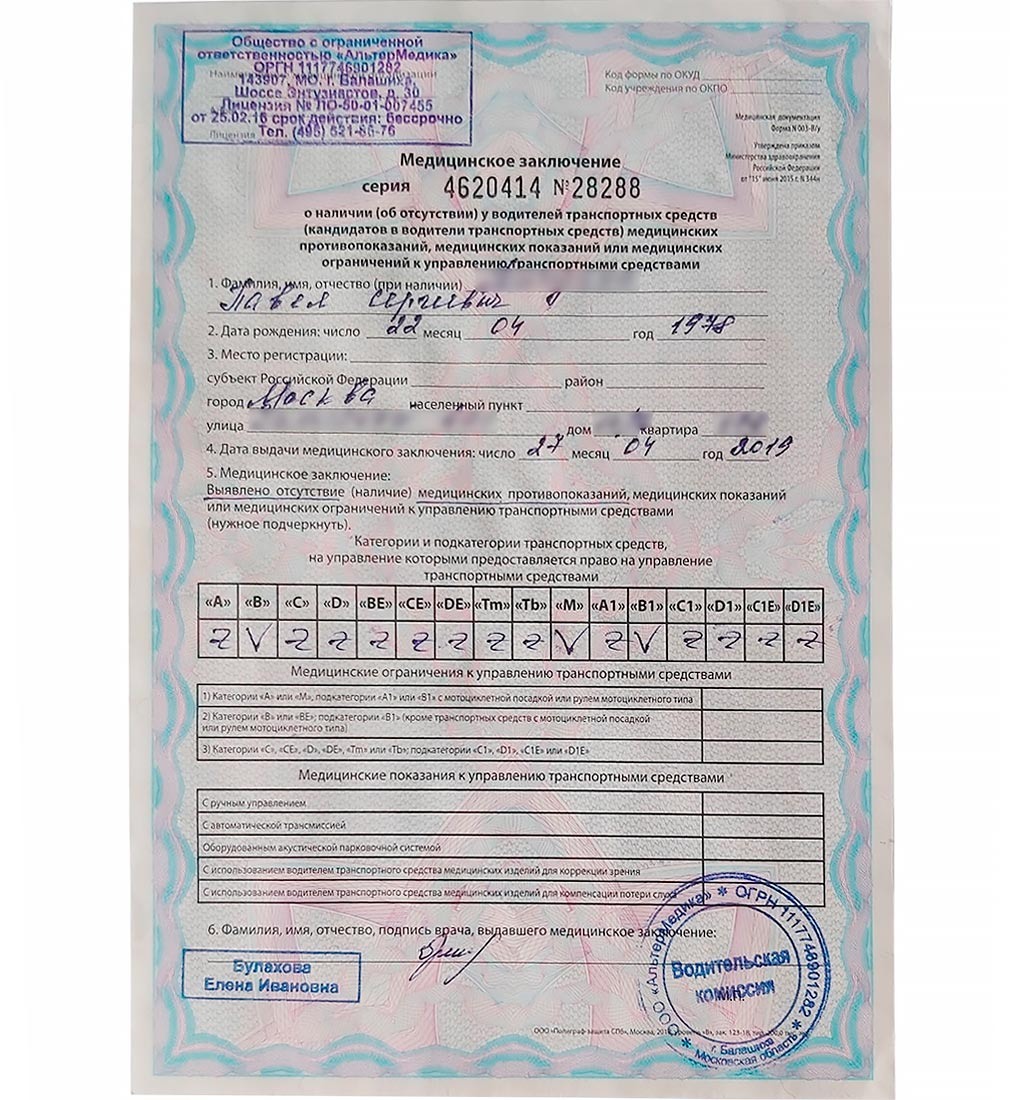 Общество с ограниченной
ответственностью «АльтерМедика»
ОГРН 1117746901282
143907, МО, г. Балашиха,
Шоссе Энтузиастов, д. 30
Лицензия № ЛО-50-01-007455
от 25.02.16 срок действия: бессрочно
Тел. (495) 521-86-76
Код формы по ОКУД
Код учреждения по ОКПО
Медицинская документация
Форма N 003-В/у
Утверждена приказом
Министерства здравоохранения
Российской Федерации
от "15" июня 2015 г. N 344н
Медицинское заключение
серия 4620414 № 28288
о наличии (об отсутствии) у водителей транспортных средств
(кандидатов в водители транспортных средств) медицинских
противопоказаний, медицинских показаний или медицинских
ограничений к управлению транспортными средствами
1. Фамилия, имя, отчество (при наличии)
Павел Сергеевич
2. Дата рождения: число 22 месяц 04 год 1978
3. Место регистрации:
субъект Российской Федерации район
город Москва населенный пункт
улица дом квартира
4. Дата выдачи медицинского заключения: число 27 месяц 04 год 2019
5. Медицинское заключение:
Выявлено отсутствие (наличие) медицинских противопоказаний, медицинских показаний
или медицинских ограничений к управлению транспортными средствами
(нужное подчеркнуть).
Категории и подкатегории транспортных средств,
на управление которыми предоставляется право на управление
транспортными средствами
«A» «B» «C» «D» «BE» «CE» «DE» «Tm» «Tb» «M» «A1» «B1» «C1» «D1» «C1E» «D1E»
Z V Z Z Z Z Z Z Z V Z V Z Z Z Z
Медицинские ограничения к управлению транспортными средствами
1) Категории «А» или «М», подкатегории «А1» или «В1» с мотоциклетной посадкой или рулем мотоциклетного типа
2) Категории «В» или «ВЕ»; подкатегории «В1» (кроме транспортных средств с мотоциклетной посадкой
или рулем мотоциклетного типа)
3) Категории «С», «СЕ», «D», «DE», «Tm» или «Tb»; подкатегории «С1», «D1», «С1Е» или «D1Е»
Медицинские показания к управлению транспортными средствами
С ручным управлением
С автоматической трансмиссией
Оборудованным акустической парковочной системой
С использованием водителем транспортного средства медицинских изделий для коррекции зрения
С использованием водителем транспортного средства медицинских изделий для компенсации потери слуха
6. Фамилия, имя, отчество, подпись врача, выдавшего медицинское заключение:
Булахова
Елена Ивановна
ООО «АльтерМедика» * ОГРН 1117746901282 *
Водительская
комиссия
г. Балашиха
Московская область
ООО «Полиграф-защита СПб», Москва, уровень «В», зак. 123-18